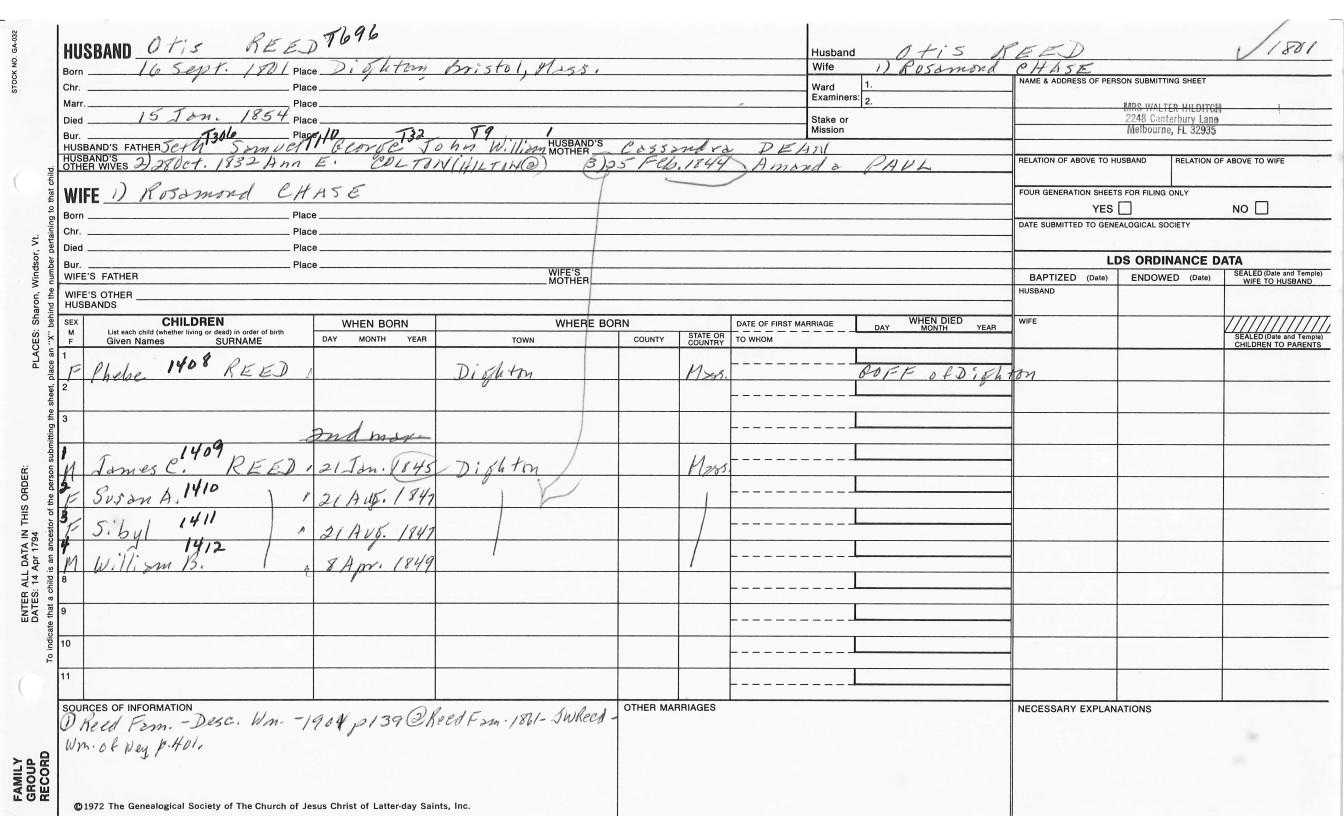 STOCK NO. GA-032
HUSBAND Otis REED T696
Born 16 Sept. 1801 Place Dighton, Bristol, Mass.
Chr. Place
Marr. Place
Died 15 Jan. 1854 Place
Bur. Place
HUSBAND'S FATHER Seth T306 Samuel 110 George T32 John T9 William 1 HUSBAND'S MOTHER Cassandra DEAN
HUSBAND'S OTHER WIVES 2) 28 Oct. 1832 Ann E. COLTON (HILTON②) 3) 25 Feb. 1844 Amanda PAUL
Husband Otis REED ✓1801
Wife 1) Rosamond CHASE
Ward Examiners: 1.
2.
Stake or Mission
NAME & ADDRESS OF PERSON SUBMITTING SHEET
MRS WALTER HILDITCH
2248 Canterbury Lane
Melbourne, FL 32935
RELATION OF ABOVE TO HUSBAND RELATION OF ABOVE TO WIFE
FOUR GENERATION SHEETS FOR FILING ONLY
YES NO
DATE SUBMITTED TO GENEALOGICAL SOCIETY
WIFE 1) Rosamond CHASE
Born Place
Chr. Place
Died Place
Bur. Place
WIFE'S FATHER WIFE'S MOTHER
WIFE'S OTHER HUSBANDS
LDS ORDINANCE DATA
BAPTIZED (Date) ENDOWED (Date) SEALED (Date and Temple) WIFE TO HUSBAND
HUSBAND
WIFE
SEALED (Date and Temple) CHILDREN TO PARENTS
SEX M F CHILDREN List each child (whether living or dead) in order of birth Given Names SURNAME WHEN BORN DAY MONTH YEAR WHERE BORN TOWN COUNTY STATE OR COUNTRY DATE OF FIRST MARRIAGE TO WHOM WHEN DIED DAY MONTH YEAR
1 F Phebe 1408 REED Dighton Mass. GOFF of Dighton
2
3
1 M James C. 1409 REED 21 Jan. 1845 Dighton Mass.
2 F Susan A. 1410 21 Aug. 1847
3 F Sibyl 1411 21 Aug. 1847
4 M William B. 1412 8 Apr. 1849
8
9
10
11
SOURCES OF INFORMATION
① Reed Fam. - Desc. Wm. - 1901 p139 ② Reed Fam. 1861 - JWReed -
Wm. of Wey p.401.
OTHER MARRIAGES
NECESSARY EXPLANATIONS
©1972 The Genealogical Society of The Church of Jesus Christ of Latter-day Saints, Inc.
PLACES: Sharon, Windsor, Vt.
ENTER ALL DATA IN THIS ORDER:
DATES: 14 Apr 1794
To indicate that a child is an ancestor of the person submitting the sheet, place an "X" behind the number pertaining to that child.
FAMILY
GROUP
RECORD